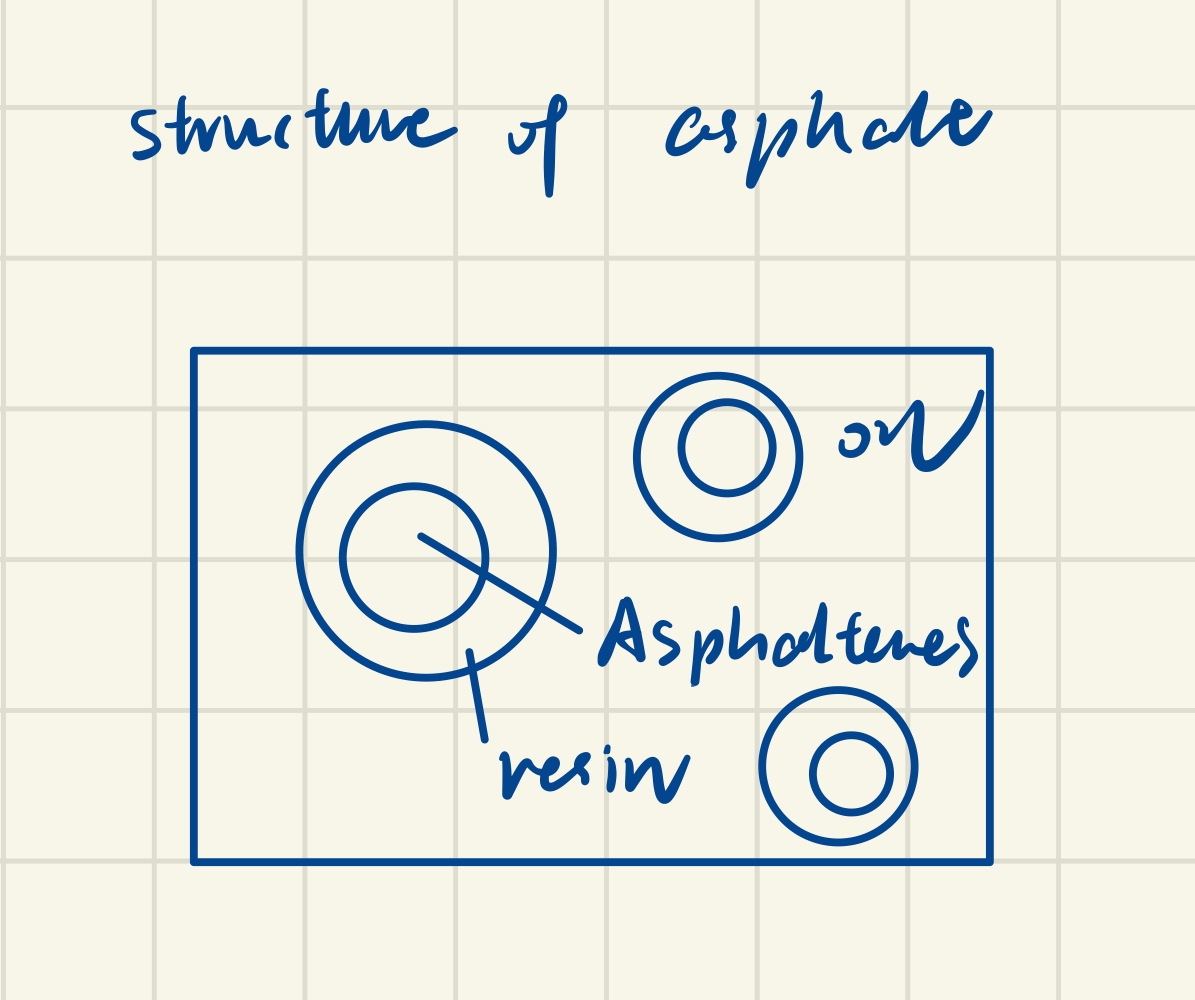 structure of asphale
oil
Asphaltenes
resin